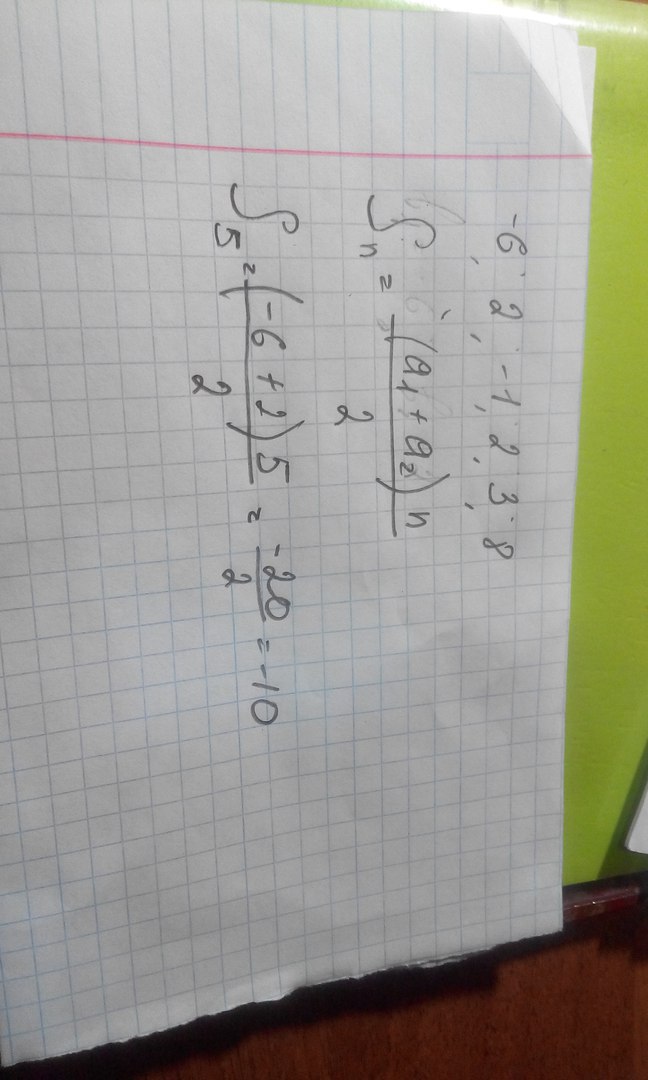 -6; 2; -1; 2; 3; 8
Sn = (a1 + a2)n / 2
S5 = (-6 + 2)5 / 2 = -20 / 2 = -10